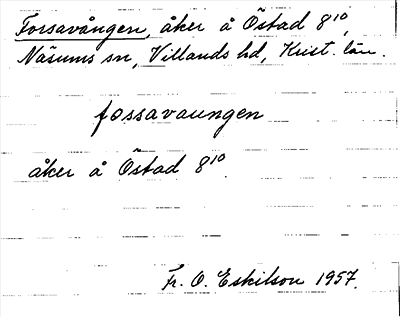 Forsavången, åker å Östad 8¹⁰,
Näsums sn, Villands hd, Krist. län.
fossavaungen
åker å Östad 8¹⁰.
Fr. O. Eskilson 1957.